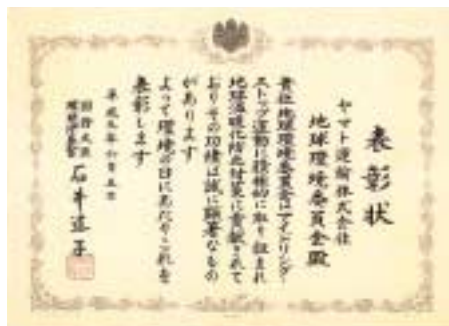 表彰状
ヤマト運輸株式会社
地球環境委員会殿
貴社地球環境委員会はアイドリング・
ストップ運動に積極的に取り組まれ
地球温暖化防止対策に貢献されて
おりその功績は誠に顕著なもの
があります
よって環境の日にあたりこれを
表彰します
平成九年六月五日
国務大臣
環境庁長官 石井道子